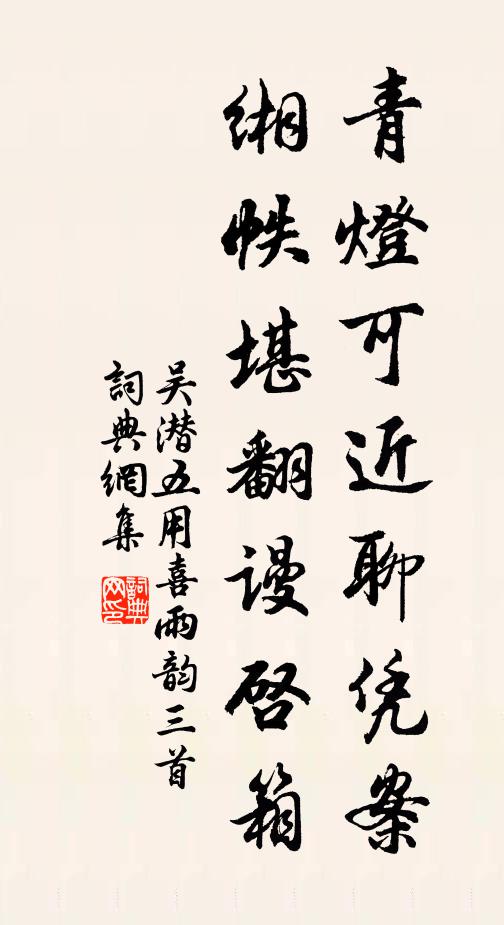 青燈可近聊凭案
緗帙堪翻謾启箱
吴潛五用喜雨韵三首
詞典網集
詞典网印